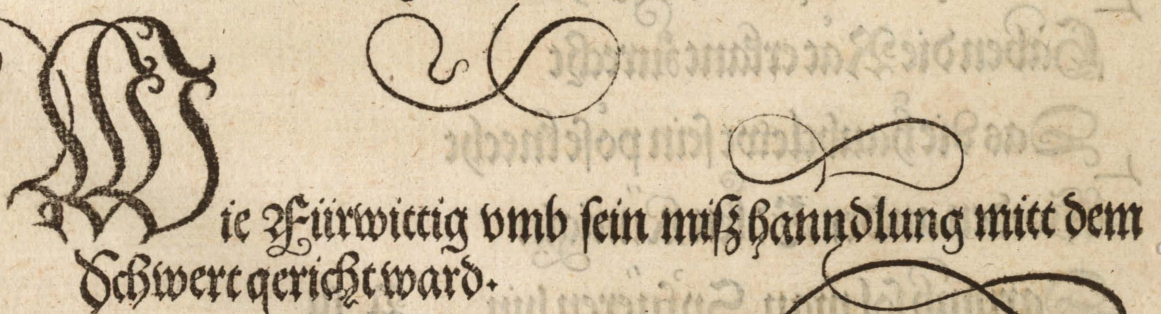 Wie Fürwittig vmb sein mißhanndlung mitt dem
Schwert gericht ward.